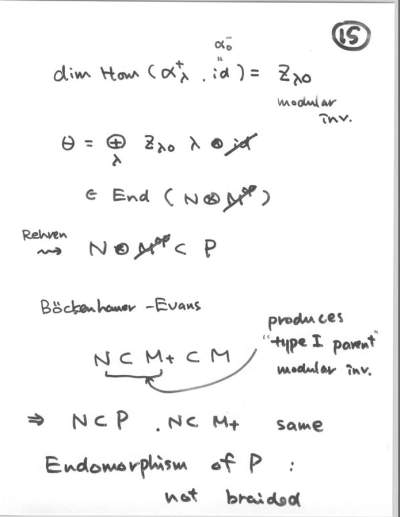 15
α₀⁻
"
dim Hom (α⁺_λ , id) = Z_λ0
modular
inv.
Θ = ⊕_λ Z_λ0 λ ⊗ id
∈ End (N ⊗ M^op)
Rehren
⇝ N ⊗ M^op ⊂ P
Böckenhauer - Evans
produces
"type I parent"
N ⊂ M₊ ⊂ M
modular inv.
⇒ N ⊂ P , N ⊂ M₊ same
Endomorphism of P :
not braided